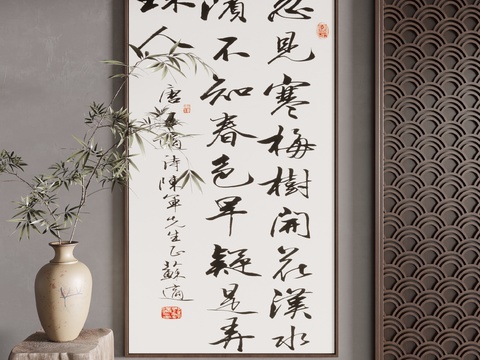 忽見寒梅樹開花漢水
濱不知春色早疑是弄
珠人
唐詩陳軍先生正蘇適